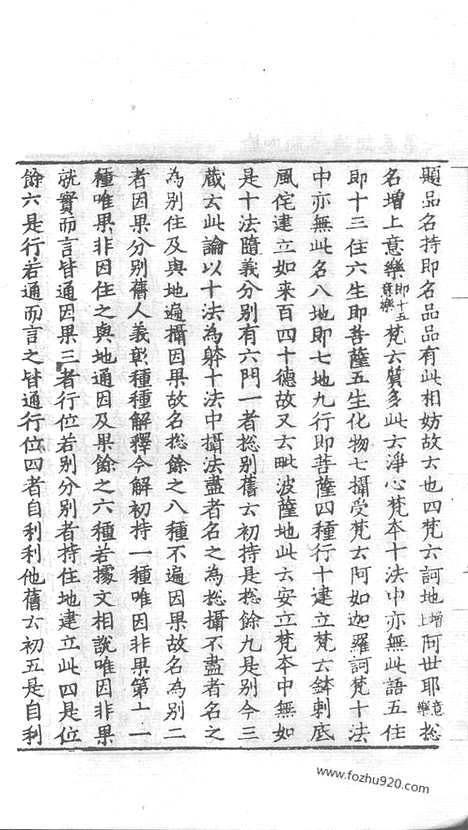 題品名持即名品品有此相妨故云也四梵云訶地增上阿世耶意樂捴
名增上意樂即十五意樂梵云質多此云淨心梵本十法中亦無此語五住
即十三住六生即菩薩五生化物七攝受梵云阿如迦羅訶梵十法
中亦無此名八地即七地九行即菩薩四種行十建立梵云鉢刺底
風侘建立如来百四十德故又云毗波薩地此云安立梵本中無如
是十法隨義分別有六門一者捴別舊云初持是捴餘九是別今三
蔵云此論以十法為躰十法中攝法盡者名之為捴攝不盡者名之
為別住及與地遍攝因果故名捴餘之八種不遍因果故名為別二
者因果分別舊人義彰種種解釋今解初持一種唯因非果第十一
種唯果非因住之與地通因及果餘之六種若據文相說唯因非果
就實而言皆通因果三者行位若別分別者持住地建立此四是位
餘六是行若通而言之皆通行位四者自利利他舊云初五是自利
www.fozhu920.com